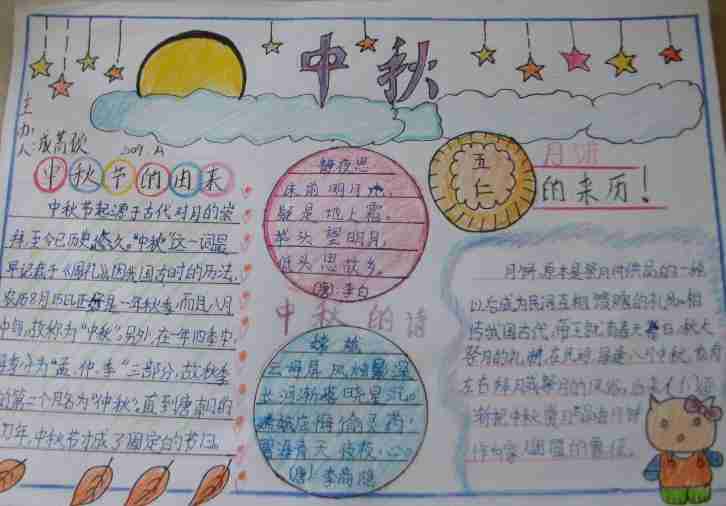 中秋
主办人:成蒿欧
中秋节的由来
中秋节起源于古代对月的崇
拜,至今已历史悠久。"中秋"这一词最
早记载于《周礼》,因我国古时的历法,
农历8月15日正好是一年秋季,而且八月
中旬,故称为"中秋"。另外,在一年四季中
季分为"孟、仲、季"三部分,故秋季
的第二个月名为"仲秋"。直到唐朝的
初年,中秋节才成了固定的节日。
静夜思
床前明月光,
疑是地上霜。
举头望明月,
低头思故乡。
(唐)李白
中秋的诗
嫦娥
云母屏风烛影深,
长河渐落晓星沉。
嫦娥应悔偷灵药,
碧海青天夜夜心。
(唐)李商隐
五仁
月饼
的来历!
月饼,原本是祭月时供品的一种
以后成为民间互相馈赠的礼品。相
传我国古代,帝王就有春天祭日,秋天
祭月的礼制。在民间,每逢八月中秋,也有
左右拜月或祭月的风俗。后来人们逐
渐把中秋赏月与品尝月饼
作为家人团圆的象征。